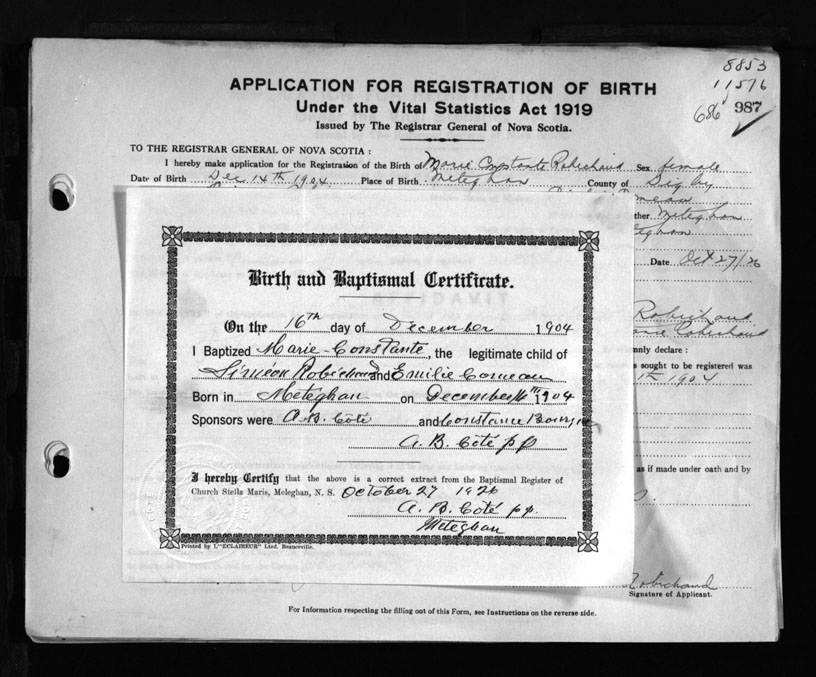 8853
11576
686 987
APPLICATION FOR REGISTRATION OF BIRTH
Under the Vital Statistics Act 1919
Issued by The Registrar General of Nova Scotia.
TO THE REGISTRAR GENERAL OF NOVA SCOTIA :
I hereby make application for the Registration of the Birth of Marie Constante Robichaud Sex female
Date of Birth Dec 14th 1904 Place of Birth Meteghan County of Digby
Comeau
ther Meteghan
teghan
Date Oct 27/26
Robichaud
Marie Robichaud
mnly declare :
s sought to be registered was
th 1904
as if made under oath and by
Birth and Baptismal Certificate.
On the 16th day of December 1904
I Baptized Marie-Constante, the legitimate child of
Siméon Robichaud and Emilie Comeau
Born in Meteghan on December 14th 1904
Sponsors were A. B. Côté and Constance
A. B. Côté pp
I hereby Certify that the above is a correct extract from the Baptismal Register of
Church Stella Maris, Meleghan, N. S. October 27 1926
A. B. Côté pp.
Meteghan
Printed by L'"ECLAIREUR" Lted. Beauceville.
Robichaud
Signature of Applicant.
For Information respecting the filling out of this Form, see Instructions on the reverse side.